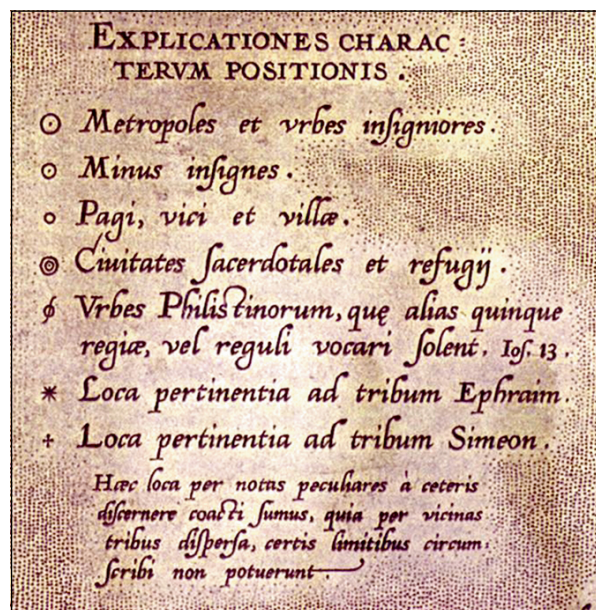 EXPLICATIONES CHARAC:
TERVM POSITIONIS.
Metropoles et vrbes inſigniores.
Minus inſignes.
Pagi, vici et villæ.
Ciuitates ſacerdotales et refugij.
Vrbes Philiſtinorum, quę alias quinque
regiæ, vel reguli vocari ſolent. Ioſ. 13.
Loca pertinentia ad tribum Ephraim.
Loca pertinentia ad tribum Simeon.
Hæc loca per notas peculiares à ceteris
diſcernere coacti ſumus, quia per vicinas
tribus diſperſa, certis limitibus circum:
ſcribi non potuerunt.